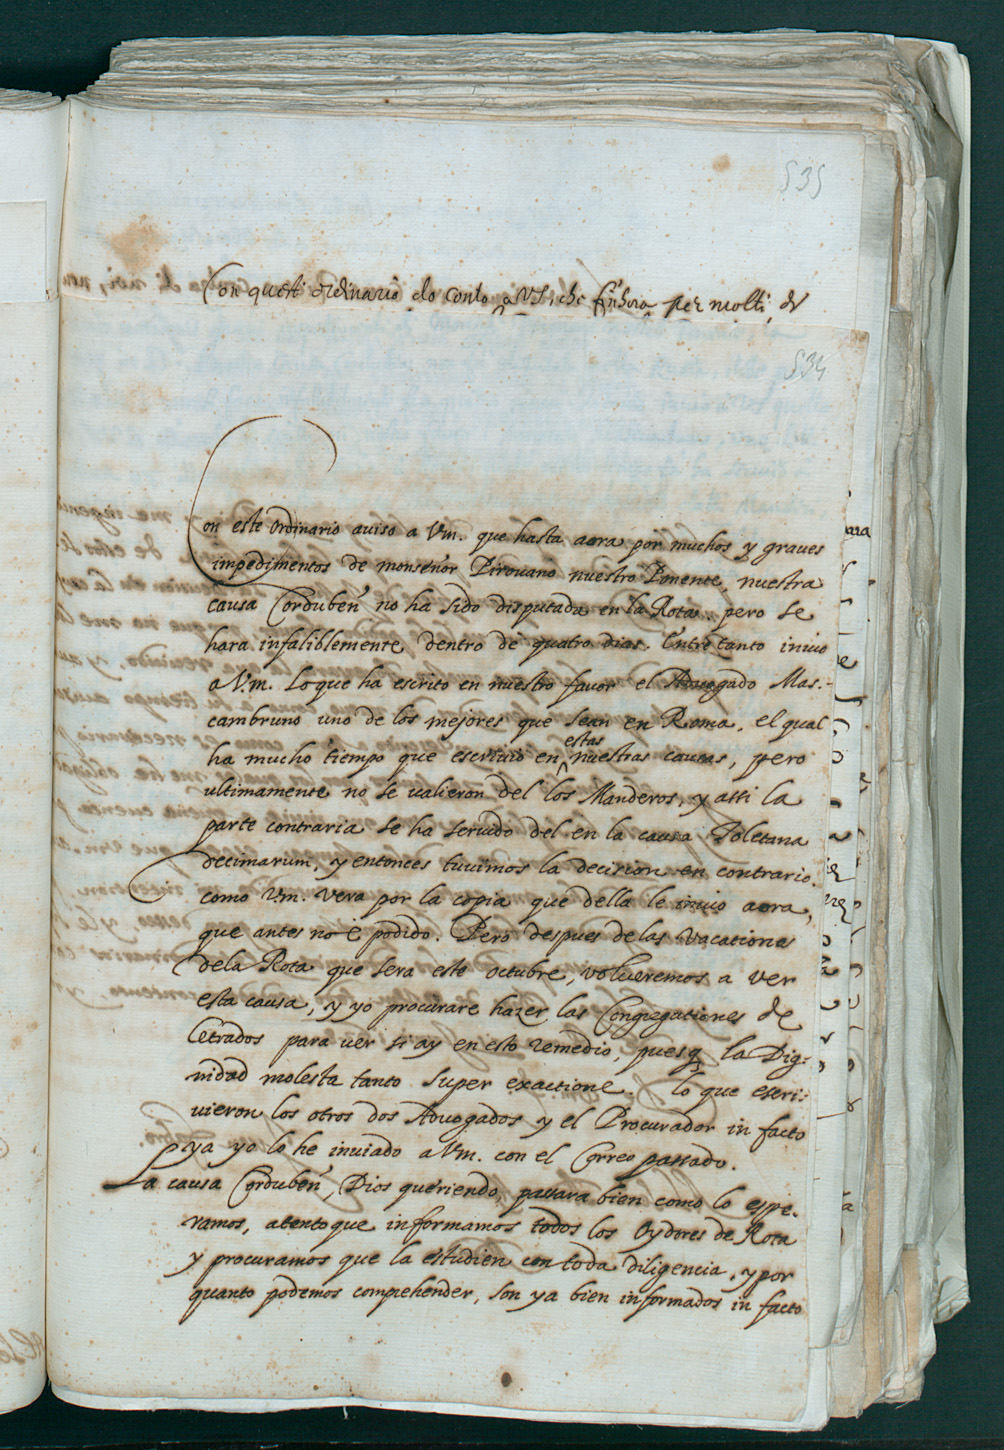 535
Con questi ordinario do conto a VS. che finhora per molti, &
534
Con este Ordinario aviso a Vm. que hasta aora por muchos y graves
impedimentos de monseñor Pirovano nuestro Ponente, nuestra
causa Cordubeñ no ha sido disputada en la Rota. pero se
hara infaliblemente, dentro de quatro dias. Entre tanto inuio
a V.m. Lo que ha escrito en nuestro favor el Advogado Mas-
cambruno uno de los mejores que sean en Roma, el qual
ha mucho tiempo que escriuio en estas nuestras causas, pero
ultimamente no se valieron del los Manderos, y assi la
parte contraria se ha seruido del en la causa Toletana
decimarum, y entonces tuuimos la decision en contrario.
como V.m. vera por la copia que della le inuio aora,
que antes no è podido. Pero despues de las vacationes
dela Rota que sera este octubre, volueremos a ver
esta causa, y yo procurare hazer las Congregationes de
Letrados para uer si ay en esto remedio, pues q la Dig:
nidad molesta tanto super exactione. lo que escri:
uieron los otros dos Advogados y el Procurador in facto
ya yo lo he inuiado a Vm. con el Correo passado.
La causa Cordubeñ, Dios queriendo, passara bien como lo espe.
ramos, atento que informamos todos los Oydores de Rota
y procuramos que la estudien con toda diligencia, y por
quanto podemos comprehender, son ya bien informados in facto